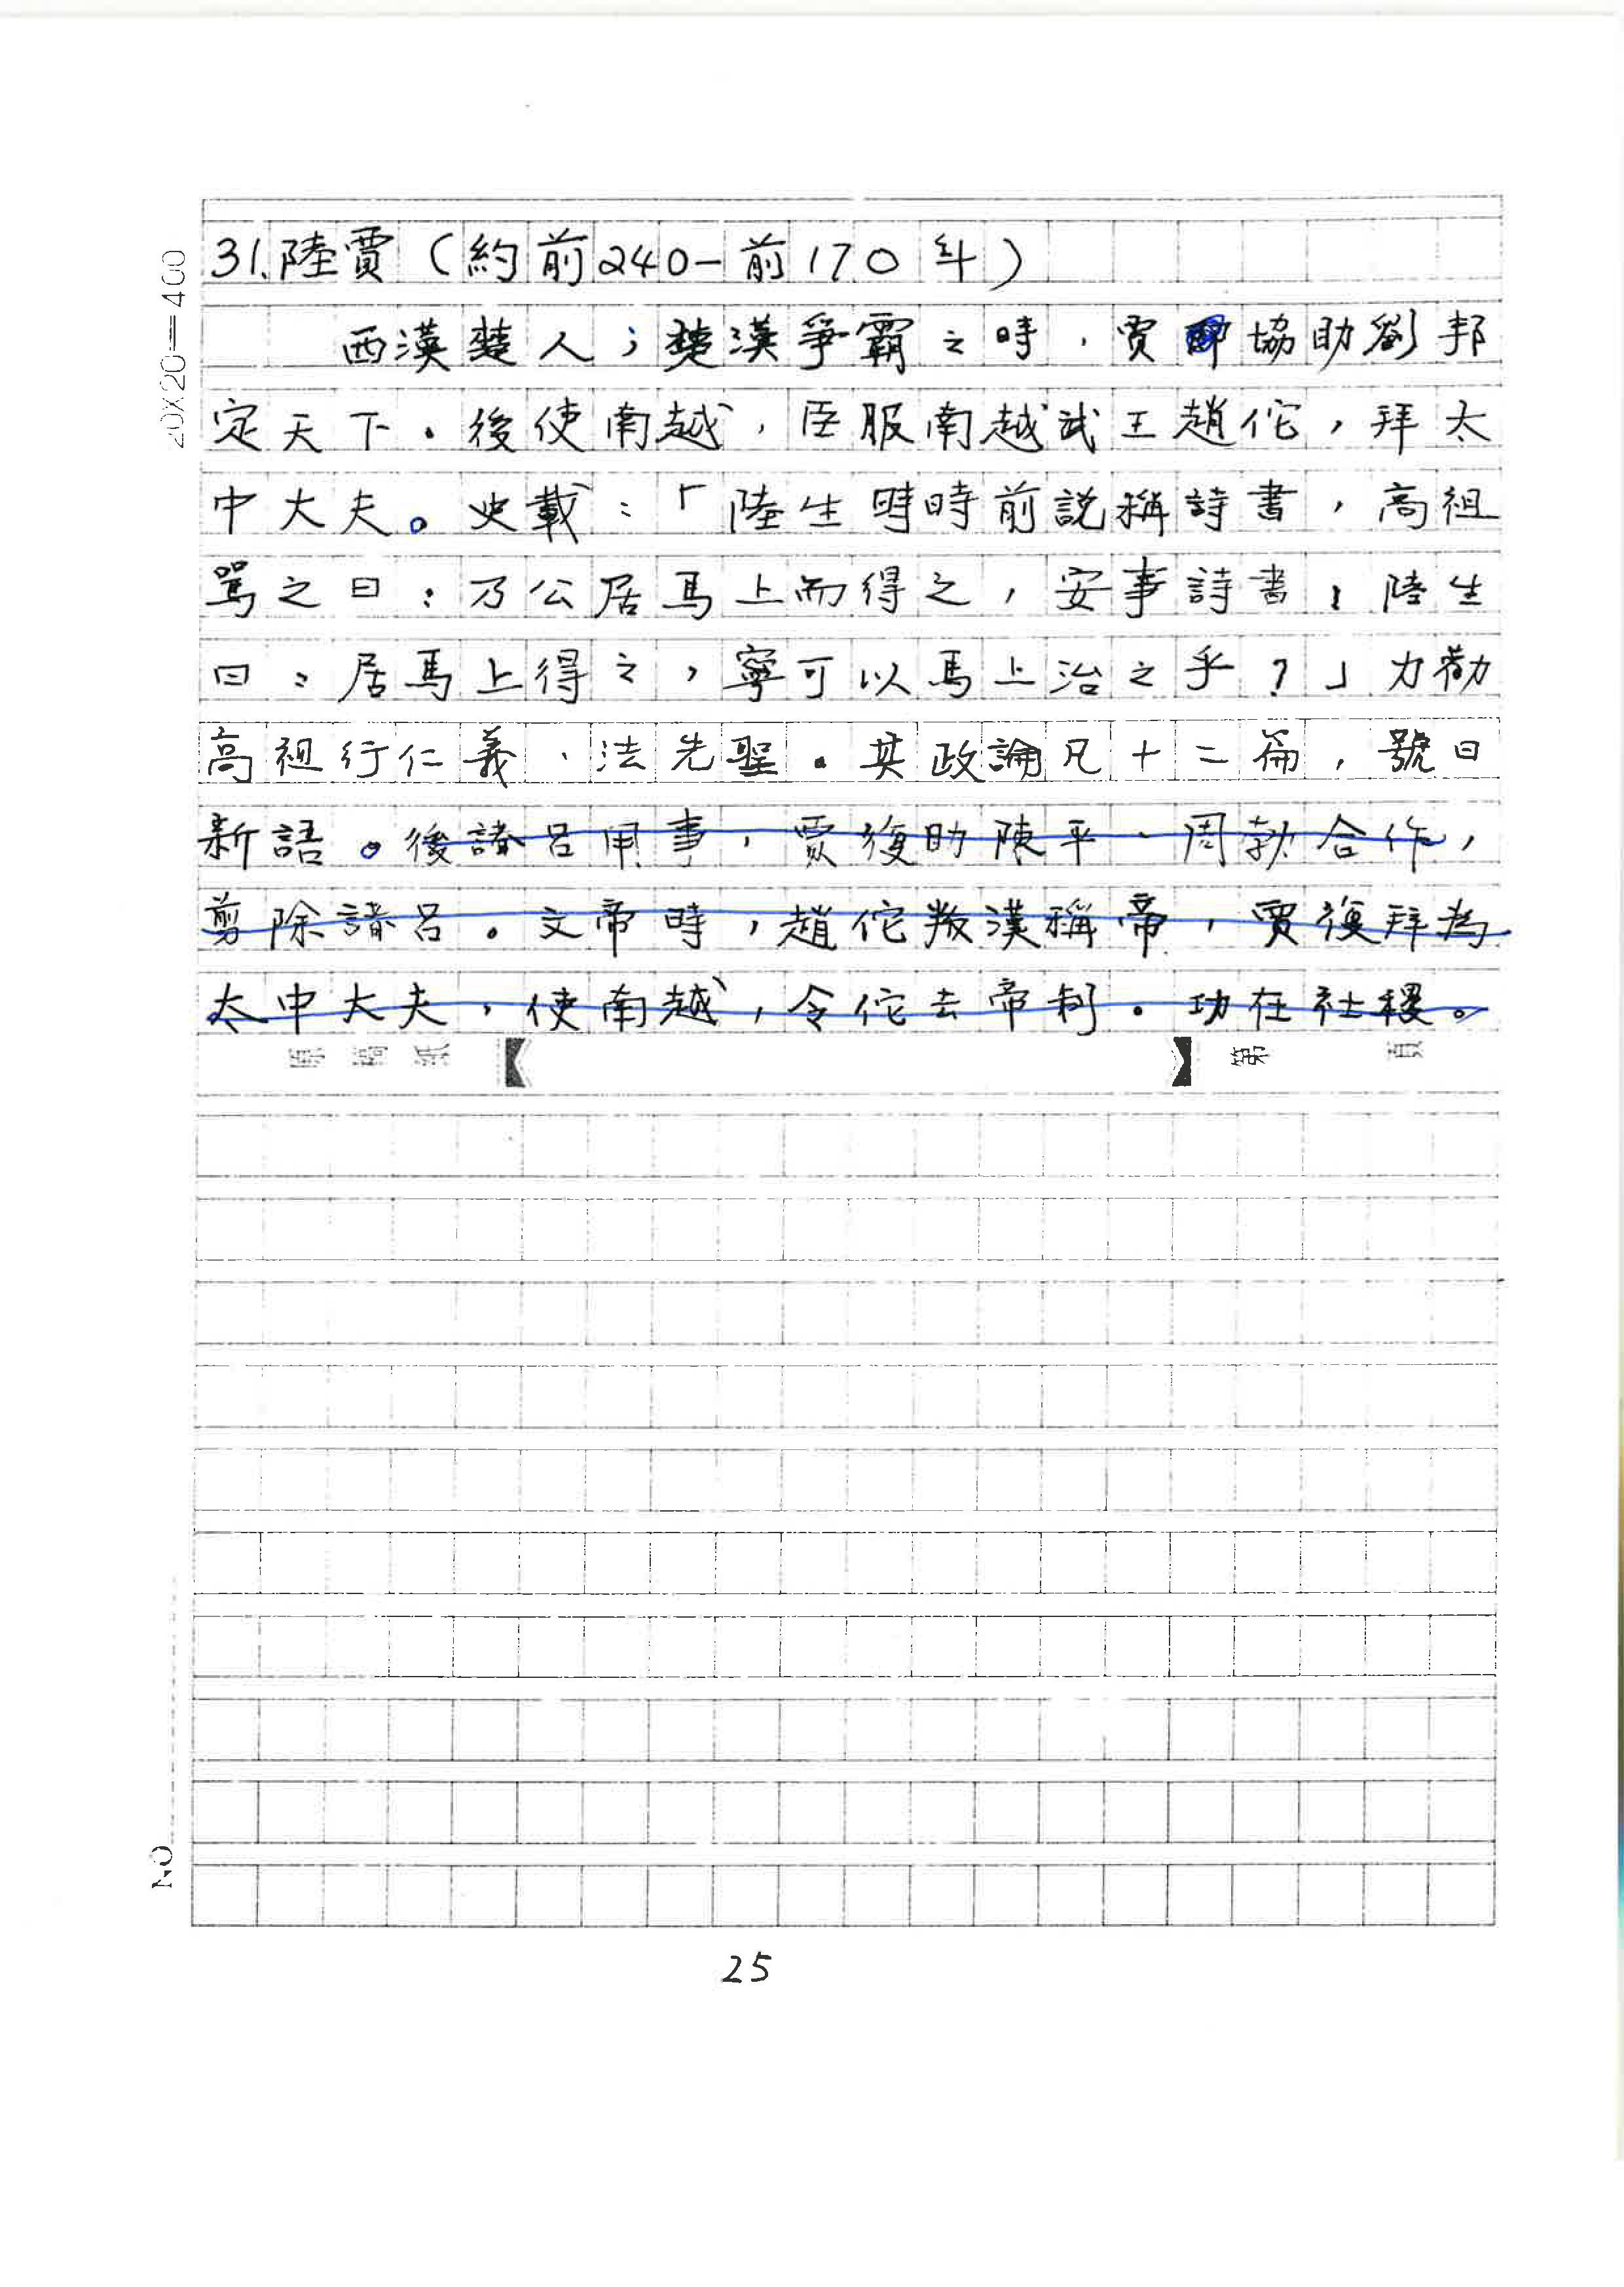 20X20=400
31.陸賈（約前240-前170年）
西漢楚人；楚漢爭霸之時，賈即協助劉邦
定天下。後使南越，臣服南越武王趙佗，拜太
中大夫。史載：「陸生時時前說稱詩書，高祖
罵之曰：乃公居馬上而得之，安事詩書！陸生
曰：居馬上得之，寧可以馬上治之乎？」力勸
高祖行仁義、法先聖。其政論凡十二篇，號曰
新語。後諸呂用事，賈復助陳平、周勃合作，
剪除諸呂。文帝時，趙佗叛漢稱帝，賈復拜為
太中大夫，使南越，令佗去帝制。功在社稷。
原稿紙 第 頁
NO
25